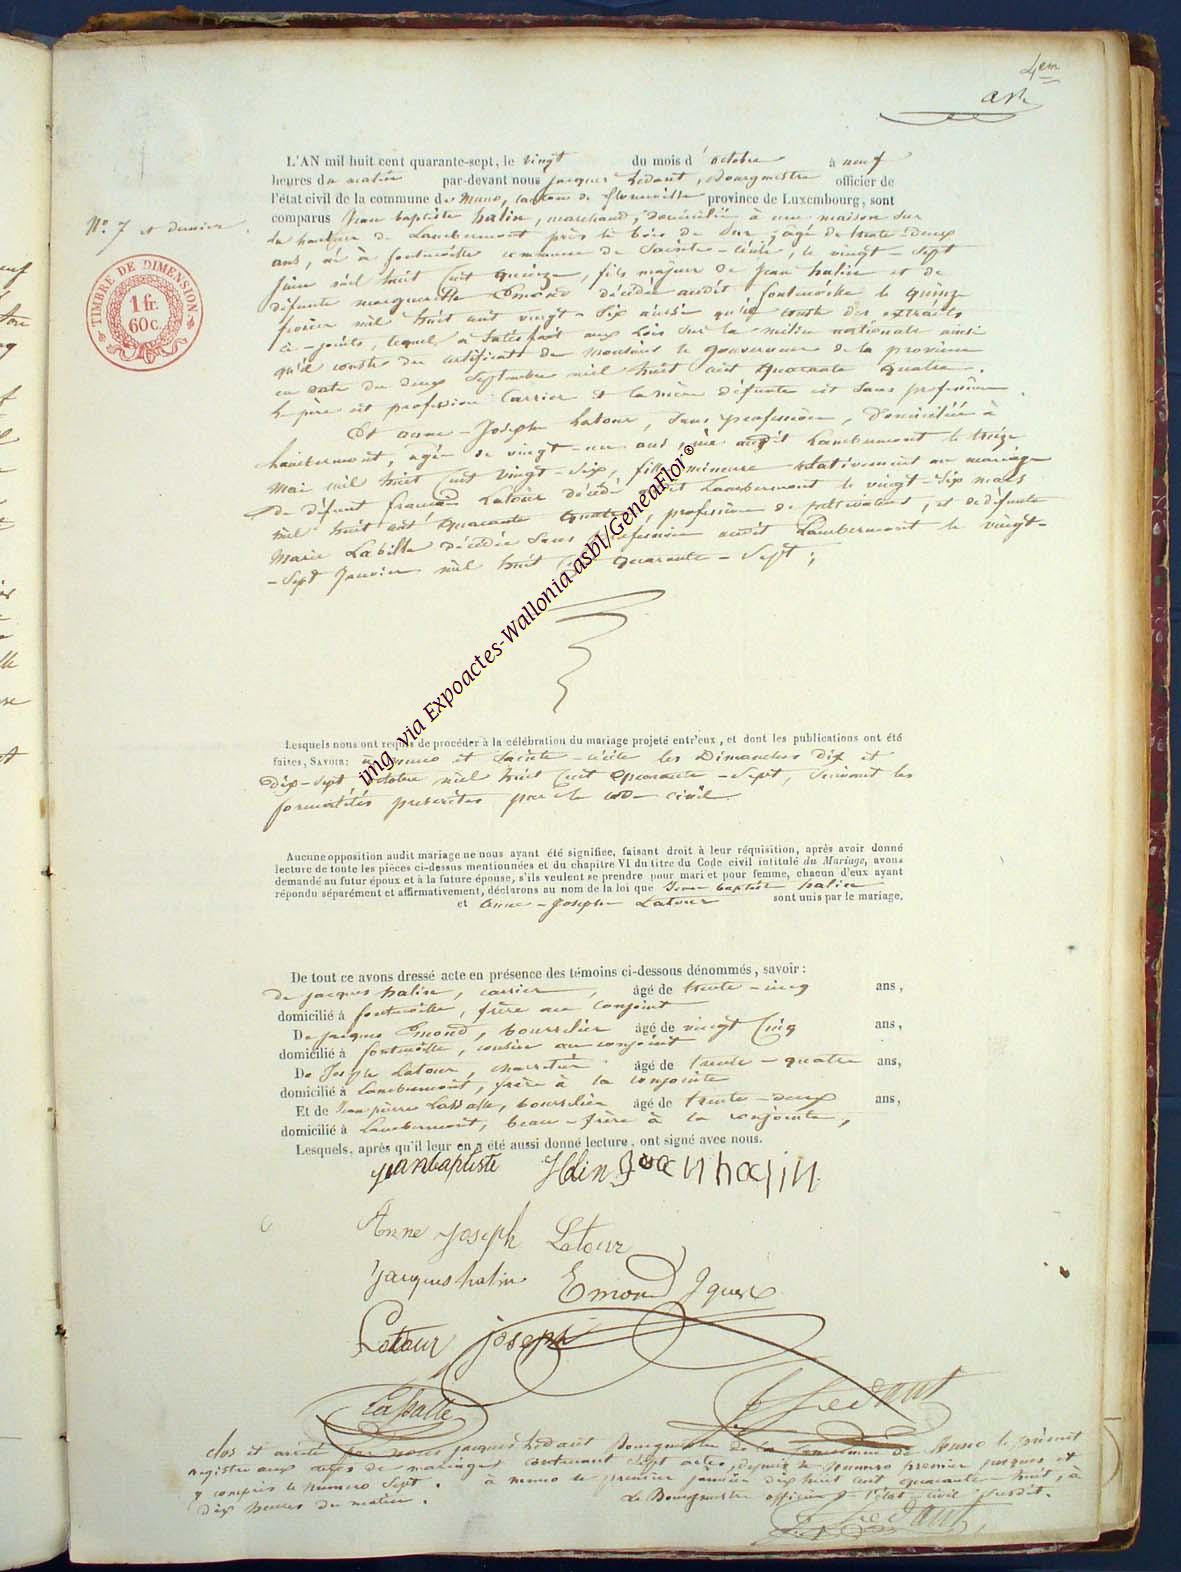 4em
N.° 7 et dernier.
TIMBRE DE DIMENSION
1 fr.
60 c.
L'AN mil huit cent quarante-sept, le vingt du mois d'octobre à neuf
heures du matin par-devant nous jacques Ledant, Bourgmestre officier de
l'état civil de la commune de Muno, canton de florenville province de Luxembourg, sont
comparus Jean baptiste halin, marchand, domicilié à une maison sur
la hauteur de Lambermont près le bois de Sur, âgé de trente-deux
ans, né à fontenoille commune de Sainte-cécile, le vingt-sept
juin mil huit cent quinze, fils majeur de Jean halin et de
défunte marguerite Emond décédée audit fontenoille le quinze
février mil huit cent vingt-six ainsi qu'il conste des extraits
ci-joints, lequel a satisfait aux lois sur la milice nationale ainsi
qu'il conste du certificat de monsieur le gouverneur de la province
en date du deux Septembre mil huit cent quarante quatre.
Le père est profession carrier et la mère défunte est sans profession
Et anne-Joseph Latour, sans profession, domiciliée à
Lambermont, âgée de vingt-un ans, née audit Lambermont le treize
Mai mil huit cent vingt-six, fille mineure relativement au mariage
de défunt françois Latour décédé audit Lambermont le vingt-six mars
mil huit cent quarante quatre, profession de cultivateur, et de défunte
Marie Labille décédée sans profession audit Lambermont le vingt-
-sept Janvier mil huit cent quarante-sept;
Lesquels nous ont requis de procéder à la célébration du mariage projeté entr'eux, et dont les publications ont été
faites, SAVOIR: à muno et Sainte-cécile les Dimanches dix et
dix-sept octobre mil huit cent quarante-sept, suivant les
formalités prescrites par le code civil.
Aucune opposition audit mariage ne nous ayant été signifiee, faisant droit à leur réquisition, après avoir donné
lecture de toute les pièces ci-dessus mentionnées et du chapitre VI du titre du Code civil intitulé du Mariage, avons
demandé au futur époux et à la future épouse, s'ils veulent se prendre pour mari et pour femme, chacun d'eux ayant
répondu séparément et affirmativement, déclarons au nom de la loi que Jean baptiste halin
et anne-Joseph Latour sont unis par le mariage.
De tout ce avons dressé acte en présence des témoins ci-dessous dénommés, savoir:
de jacques halin, carrier, âgé de trente-cinq ans,
domicilié à fontenoille, frère au conjoint
De jacques Emond, bourrelier âgé de vingt cinq ans,
domicilié à fontenoille, cousin au conjoint
De Joseph Latour, charretier âgé de trente-quatre ans,
domicilié à Lambermont, frère à la conjointe
Et de Jean pierre Lassalle, bourrelier âgé de trente-deux ans,
domicilié à Lambermont, beau-frère à la conjointe,
Lesquels, après qu'il leur en a été aussi donné lecture, ont signé avec nous.
jean baptiste halin Jean halin
Anne Joseph Latour
Jacques halin Emond Jques
Latour joseph
Lassalle J Ledant
Clos et arrêté par nous jacques Ledant Bourgmestre de la commune de Muno le présent
registre aux actes de mariages contenant sept actes, depuis le numéro premier jusques et
y compris le numéro sept. à muno le premier janvier dix huit cent quarante-huit, à
dix heures du matin. Le Bourgmestre officier de l'état-civil susdit.
J Ledant
img via Expoactes-Wallonia asbl/GeneaFlor®